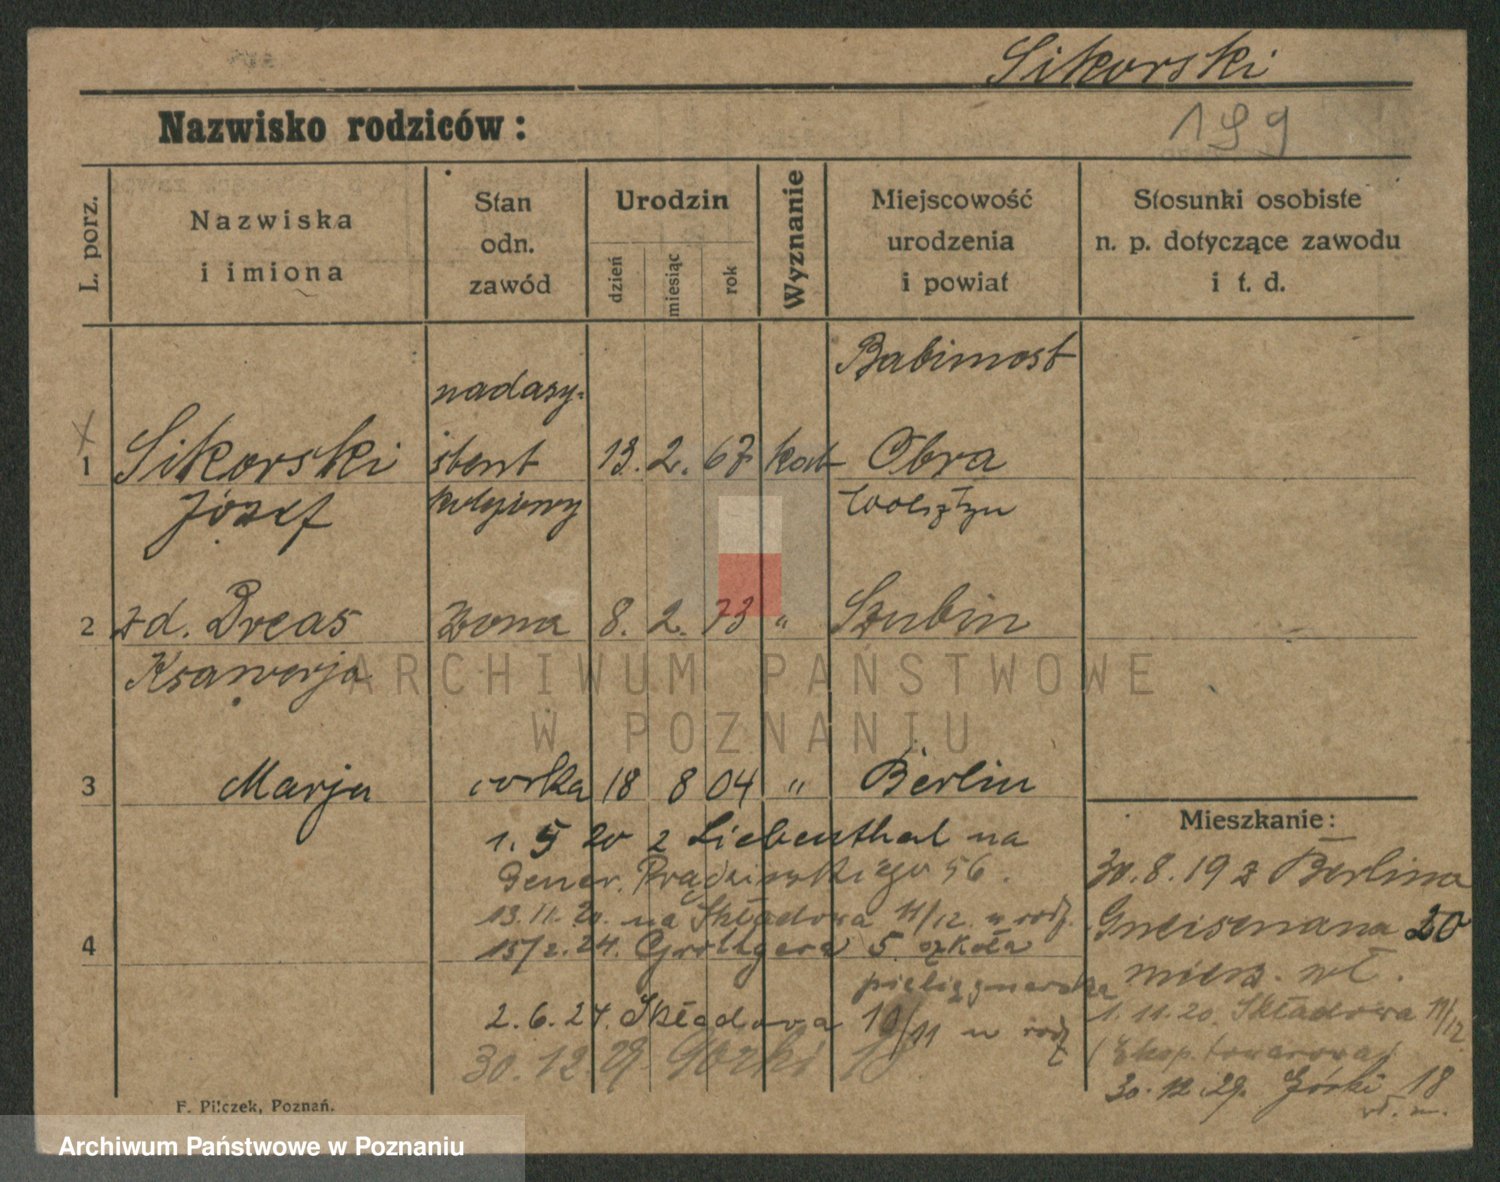 Sikorski
Nazwisko rodziców:
199
L. porz.
Nazwiska
i imiona
Stan
odn.
zawód
Urodzin
dzień
miesiąc
rok
Wyznanie
Miejscowość
urodzenia
i powiat
Stosunki osobiste
n. p. dotyczące zawodu
i t. d.
Babimost
nadasy-
x
1 Sikorski istent 13. 2. 67 kat Obra
Józef kolejowy Wolsztyn
2 zd. Dreas żona 8. 2. 73 " Szubin
Ksawerja
3 Marja córka 18 8 04 " Berlin
1. 5 20 z Liebenthal na
Gener. Prądzyńskiego 56.
13. 11. 20. na Składowa 11/12. u rodz.
4 15/2. 24. Grottgera 5. szkoła
pielęgniarska
2. 6. 24. Składowa 10/11 u rodz
30. 12 29 Górki 18
Mieszkanie:
30. 8. 19 z Berlina
Gneisenaua 20
miesz. wł.
1. 11. 20. Składowa 11/12.
(Eksp. towarowa)
30. 12. 29. Górki 18
F. Pilczek, Poznań.
ARCHIWUM PAŃSTWOWE
W POZNANIU
Archiwum Państwowe w Poznaniu